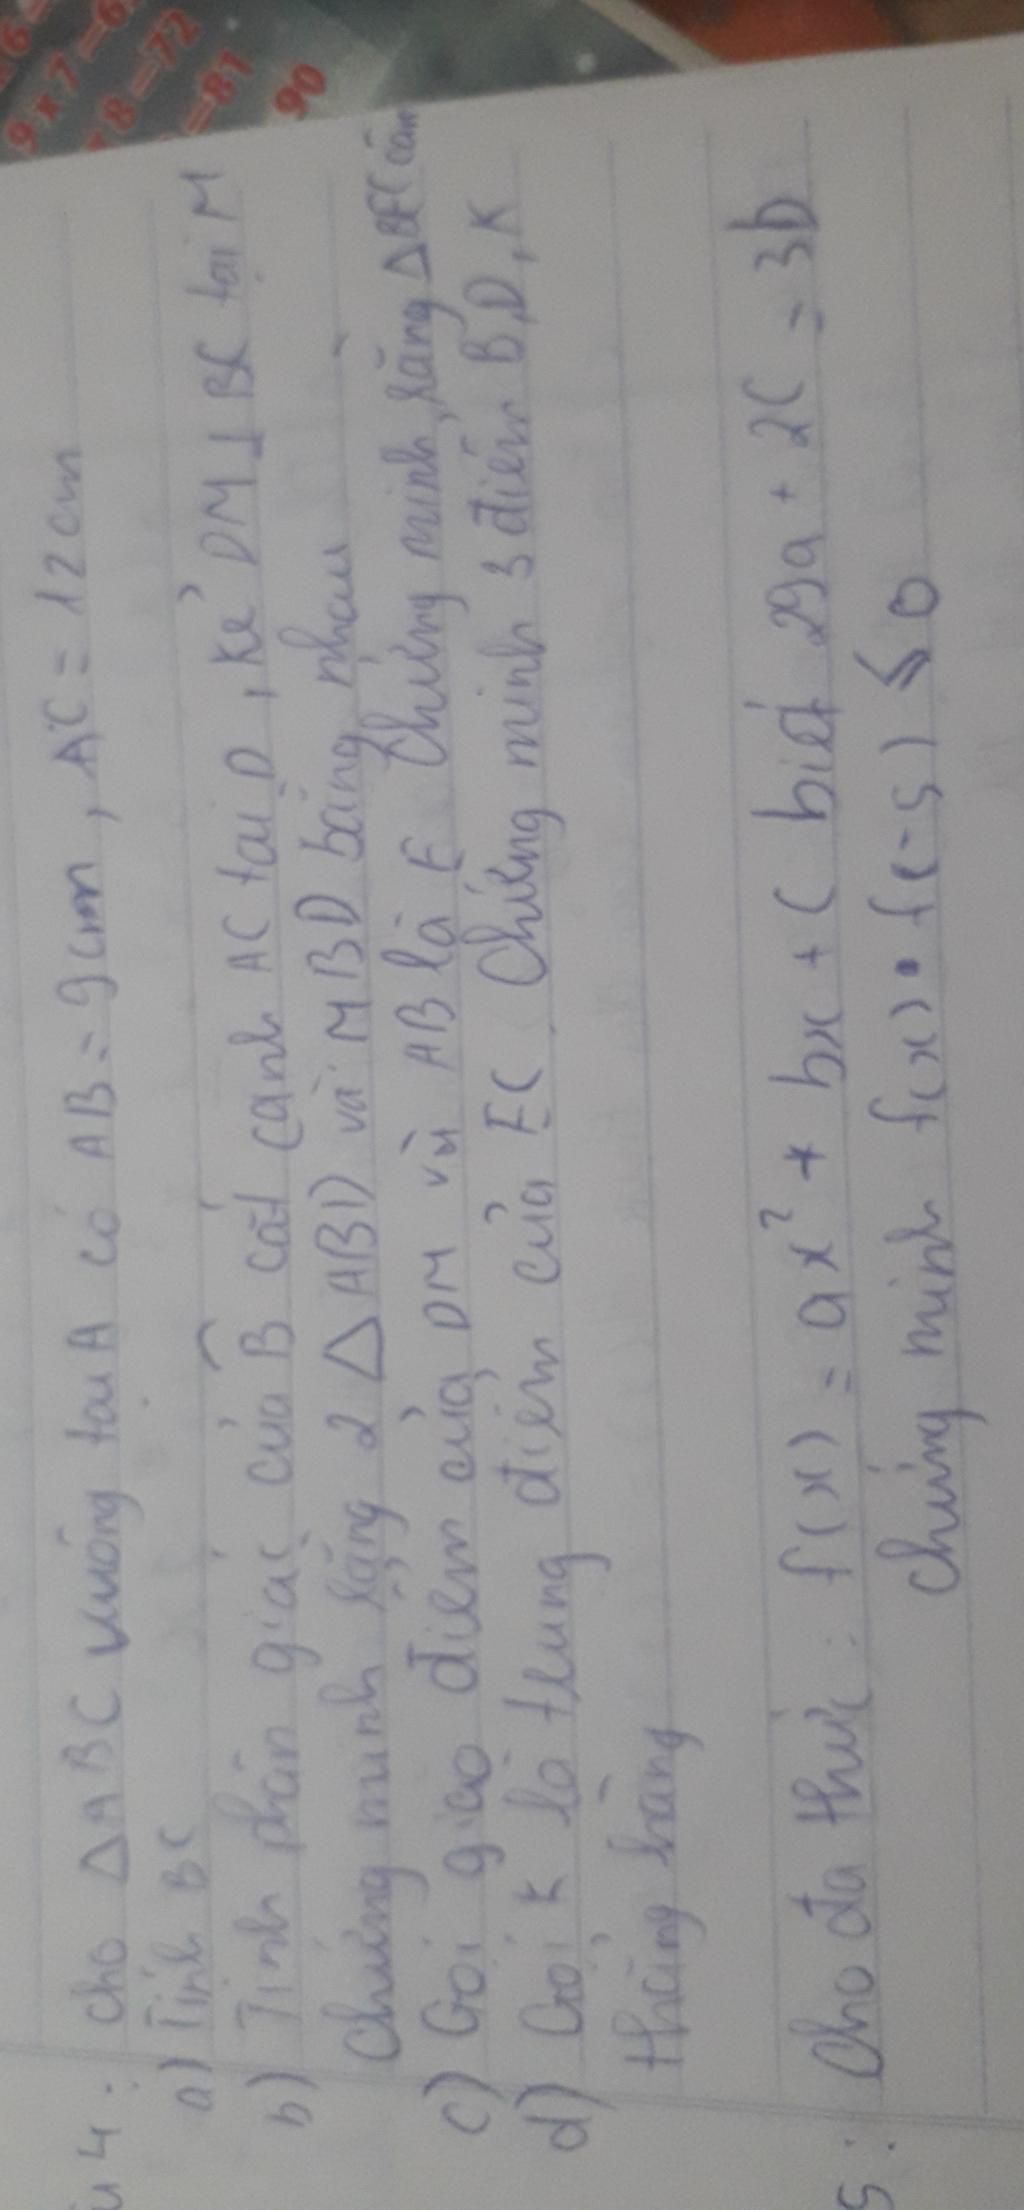 9x7=6
8=72
=81
90
4: cho ΔABC vuông tại A có AB=9cm, AC=12cm
a) Tính BC
b) Tinh phân giác của B̂ cắt cạnh AC tại D, kẻ DM⊥BC tại M
Chứng minh rằng 2 ΔABD và MBD bằng nhau
c) Gọi giao điểm của DM và AB là E Chứng minh rằng ΔBEC cân
d) Gọi K là trung điểm của EC. Chứng minh 3 điểm B,D,K
thẳng hàng
5: Cho đa thức: f(x)=ax²+bx+c biết 29a+2c=3b
Chứng minh f(x).f(-5)≤0